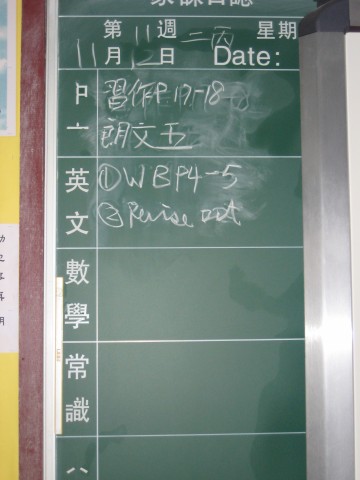 家課日誌
第 11 週 二丙 星期
11 月 12 日 Date:
習作P.17-18
朗文五
英文
①WB P4-5
②Revise
數學
常識